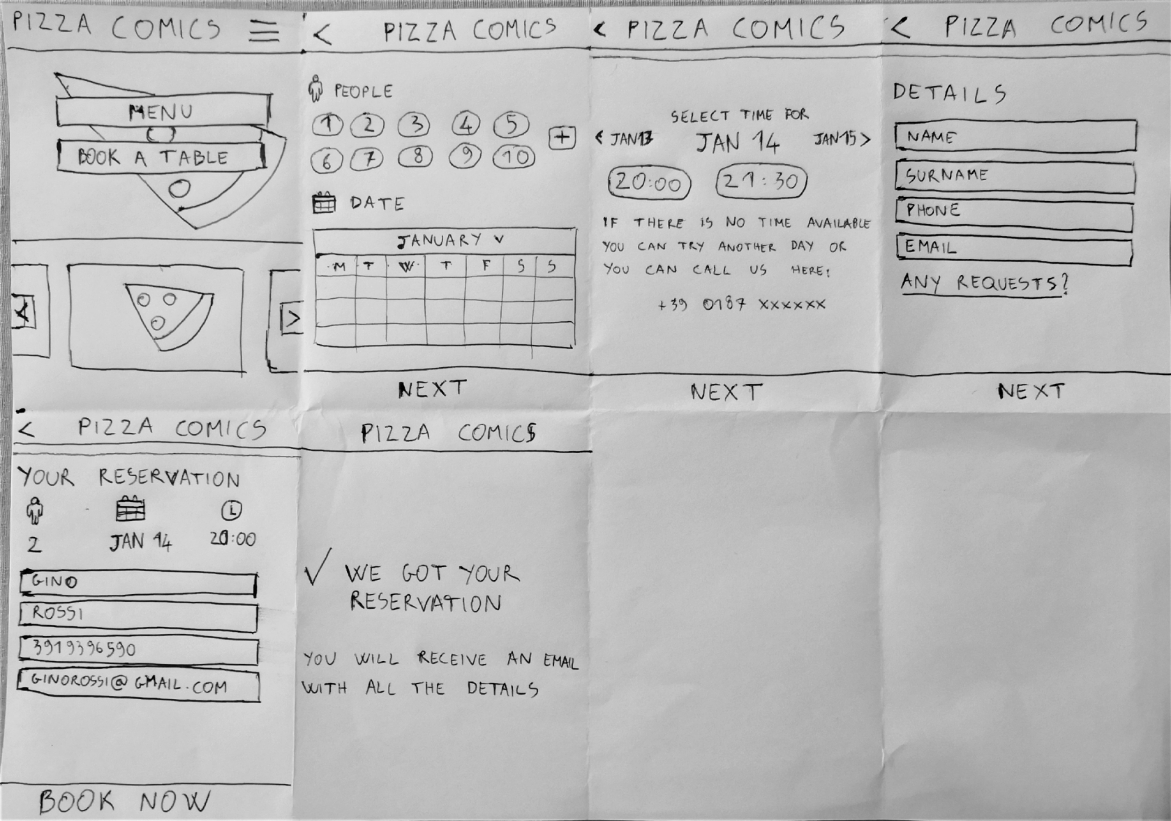 PIZZA COMICS
MENU
BOOK A TABLE
<
>
< PIZZA COMICS
PEOPLE
1 2 3 4 5
6 7 8 9 10
+
DATE
JANUARY
M T W T F S S
NEXT
< PIZZA COMICS
SELECT TIME FOR
< JAN 13 JAN 14 JAN 15 >
20:00 21:30
IF THERE IS NO TIME AVAILABLE
YOU CAN TRY ANOTHER DAY OR
YOU CAN CALL US HERE:
+39 0187 XXXXXX
NEXT
< PIZZA COMICS
DETAILS
NAME
SURNAME
PHONE
EMAIL
ANY REQUESTS?
NEXT
< PIZZA COMICS
YOUR RESERVATION
2 JAN 14 20:00
GINO
ROSSI
3919396590
GINOROSSI@GMAIL.COM
BOOK NOW
PIZZA COMICS
✓ WE GOT YOUR
RESERVATION
YOU WILL RECEIVE AN EMAIL
WITH ALL THE DETAILS